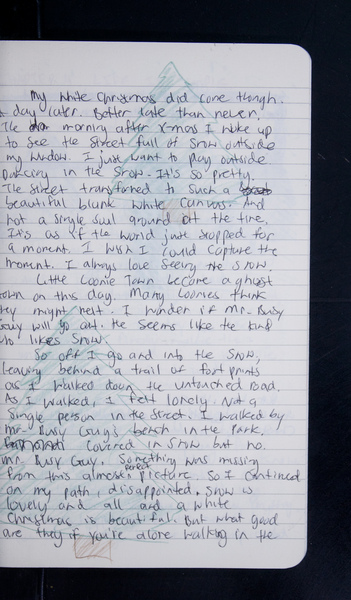 My white Christmas did come though.
A day later. Better late than never.
The morning after X-mas I woke up
to see the street full of snow outside
my window. I just want to play outside.
Dancing in the snow. It's so pretty.
The street transformed to such a
beautiful blank white canvas. And
not a single soul ground at the time.
It's as if the world just stopped for
a moment. I wish I could capture the
moment. I always love seeing the snow.
Little Loonie Town became a ghost
town on this day. Many Loonies think
they might melt. I wonder if Mr. Busy
Guy will go out. He seems like the kind
who likes snow.
So off I go and into the snow,
leaving behind a trail of foot prints
as I walked down the untouched road.
As I walked, I felt lonely. Not a
single person in the street. I walked by
Mr. Busy Guy's bench in the park.
covered in snow but no
Mr. Busy Guy. Something was missing
from this almost perfect picture. So I continued
on my path, disappointed. Snow is
lovely and all and a white
Christmas is beautiful. But what good
are they if you're alone walking in the